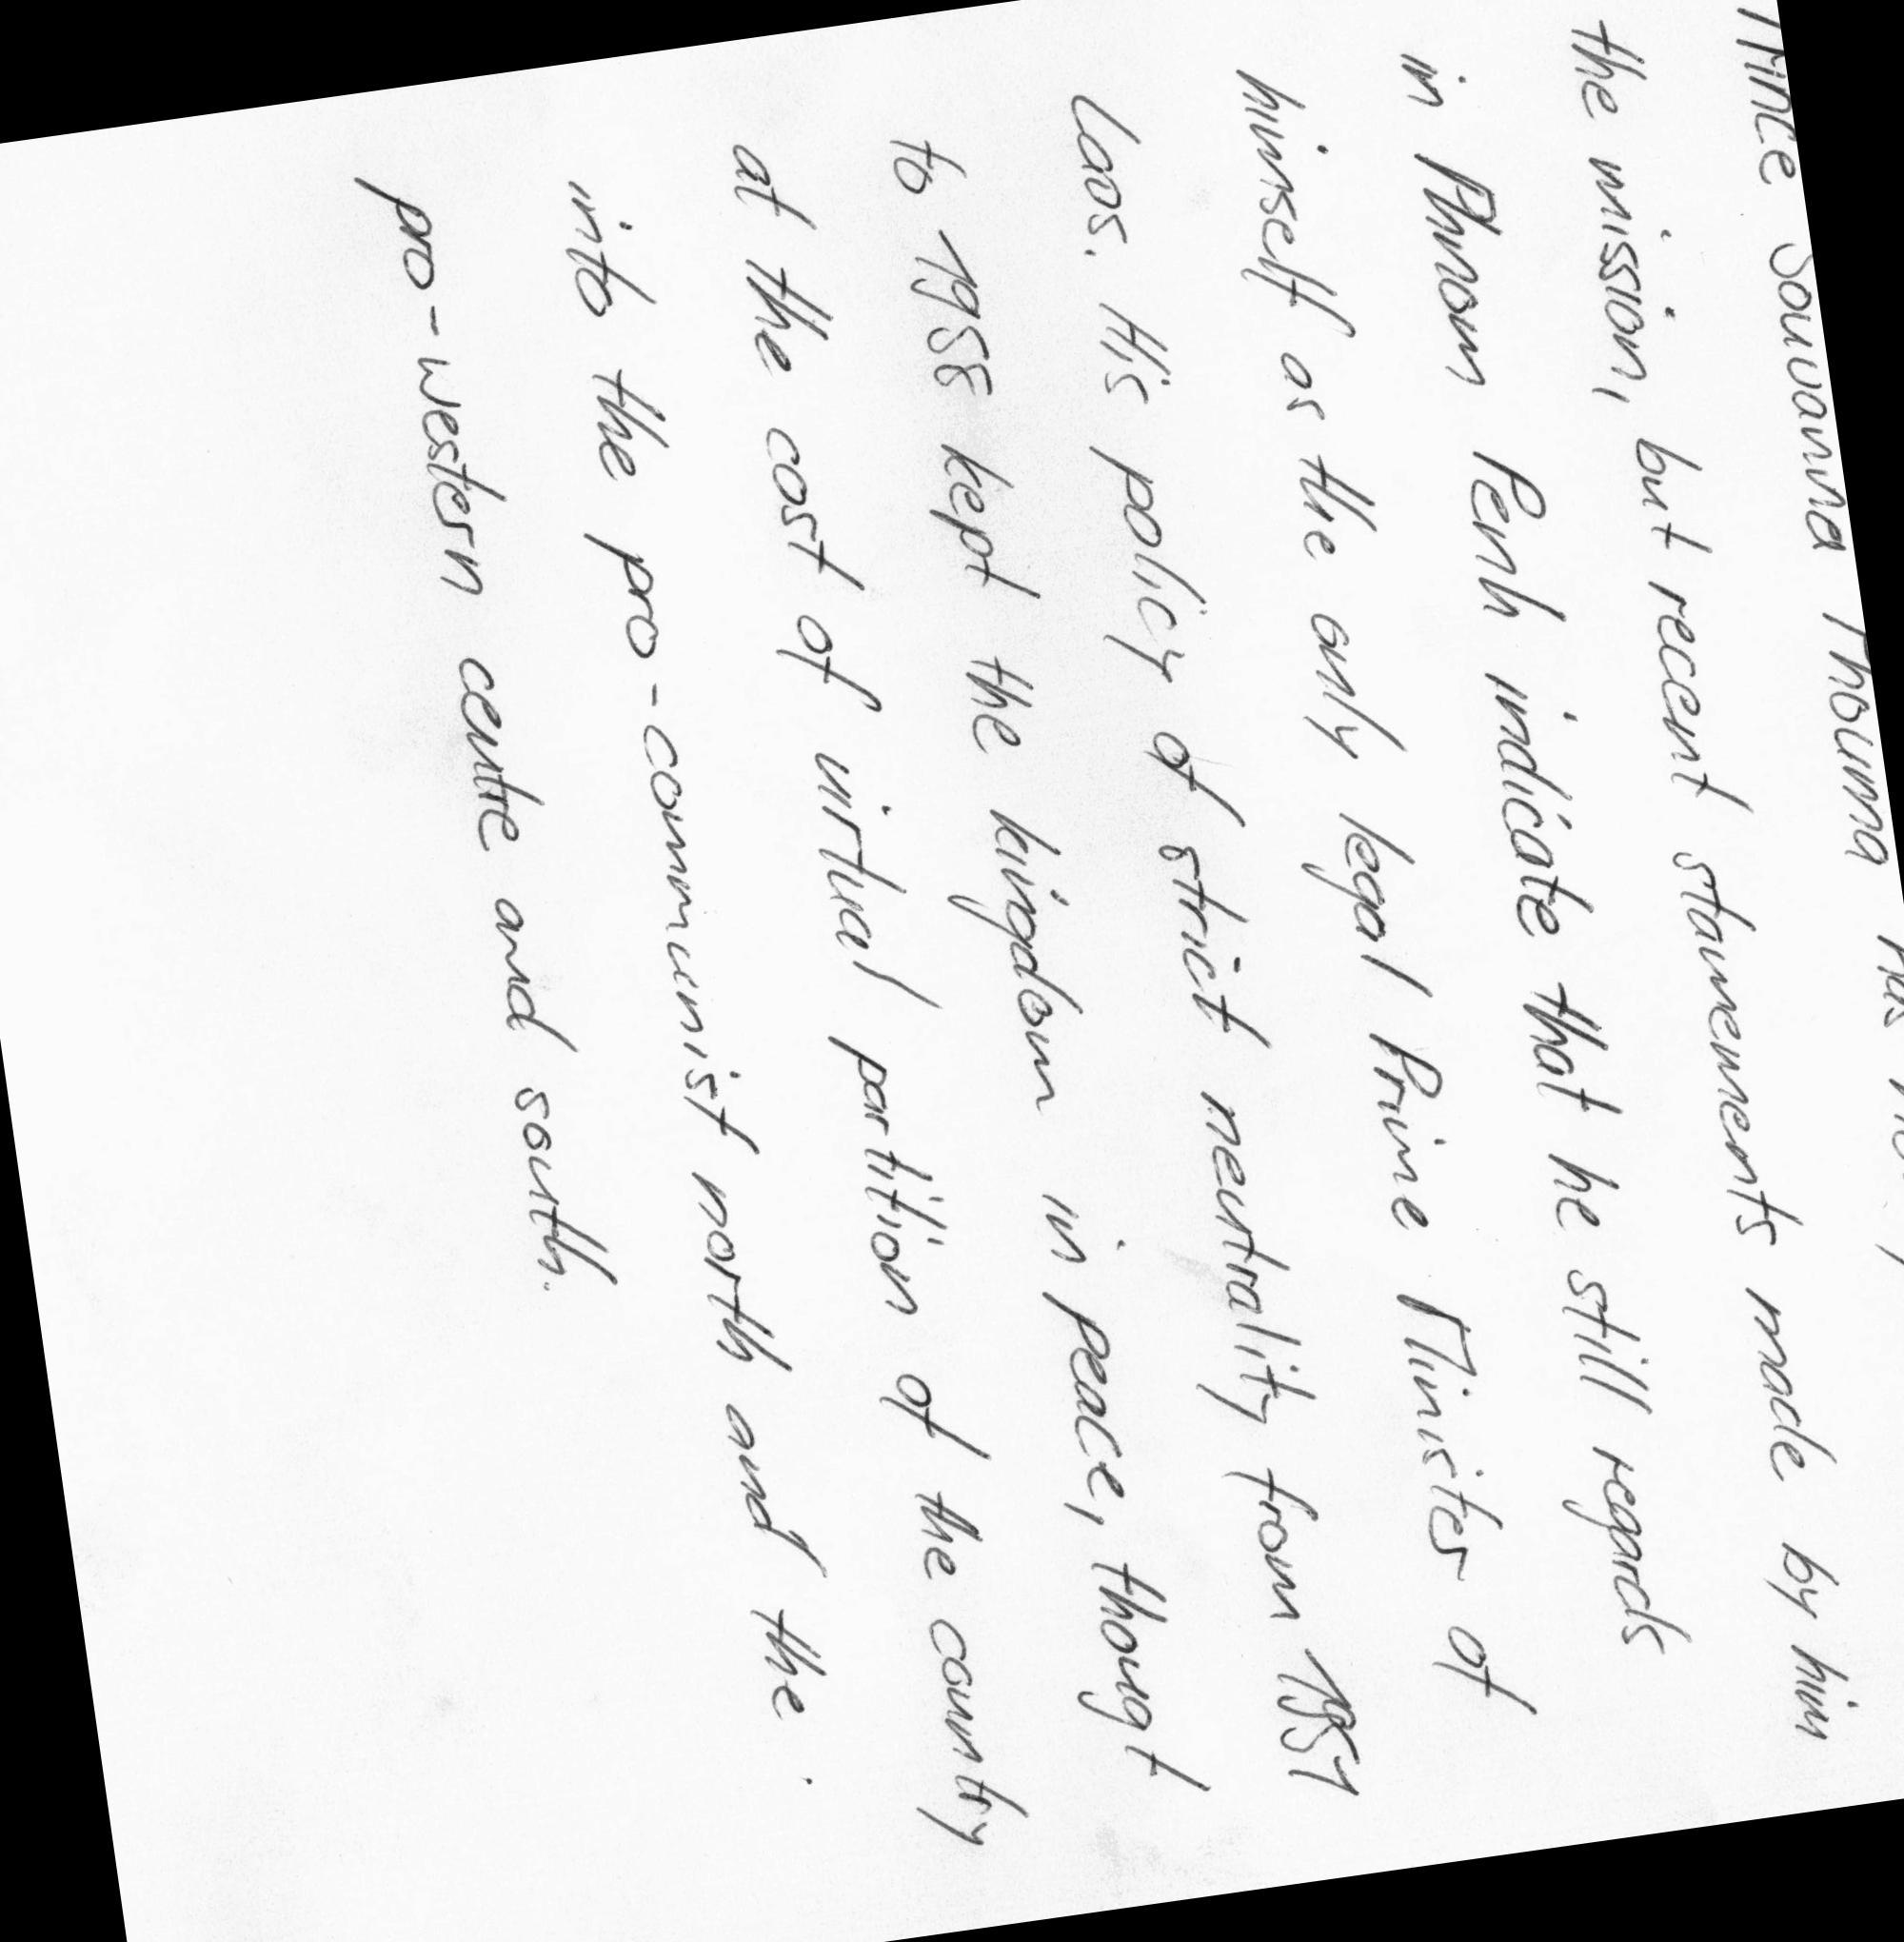 Prince Souvanna Phouma has
the mission, but recent staments made by him
in Phnom Penh indicate that he still regards
himself as the only legal Prime Minister of
Laos. His policy of strict neutrality from 1951
to 1958 kept the kingdom in peace, thougt
at the cost of virtual partition of the country
into the pro-communist north and the
pro-western centre and south.